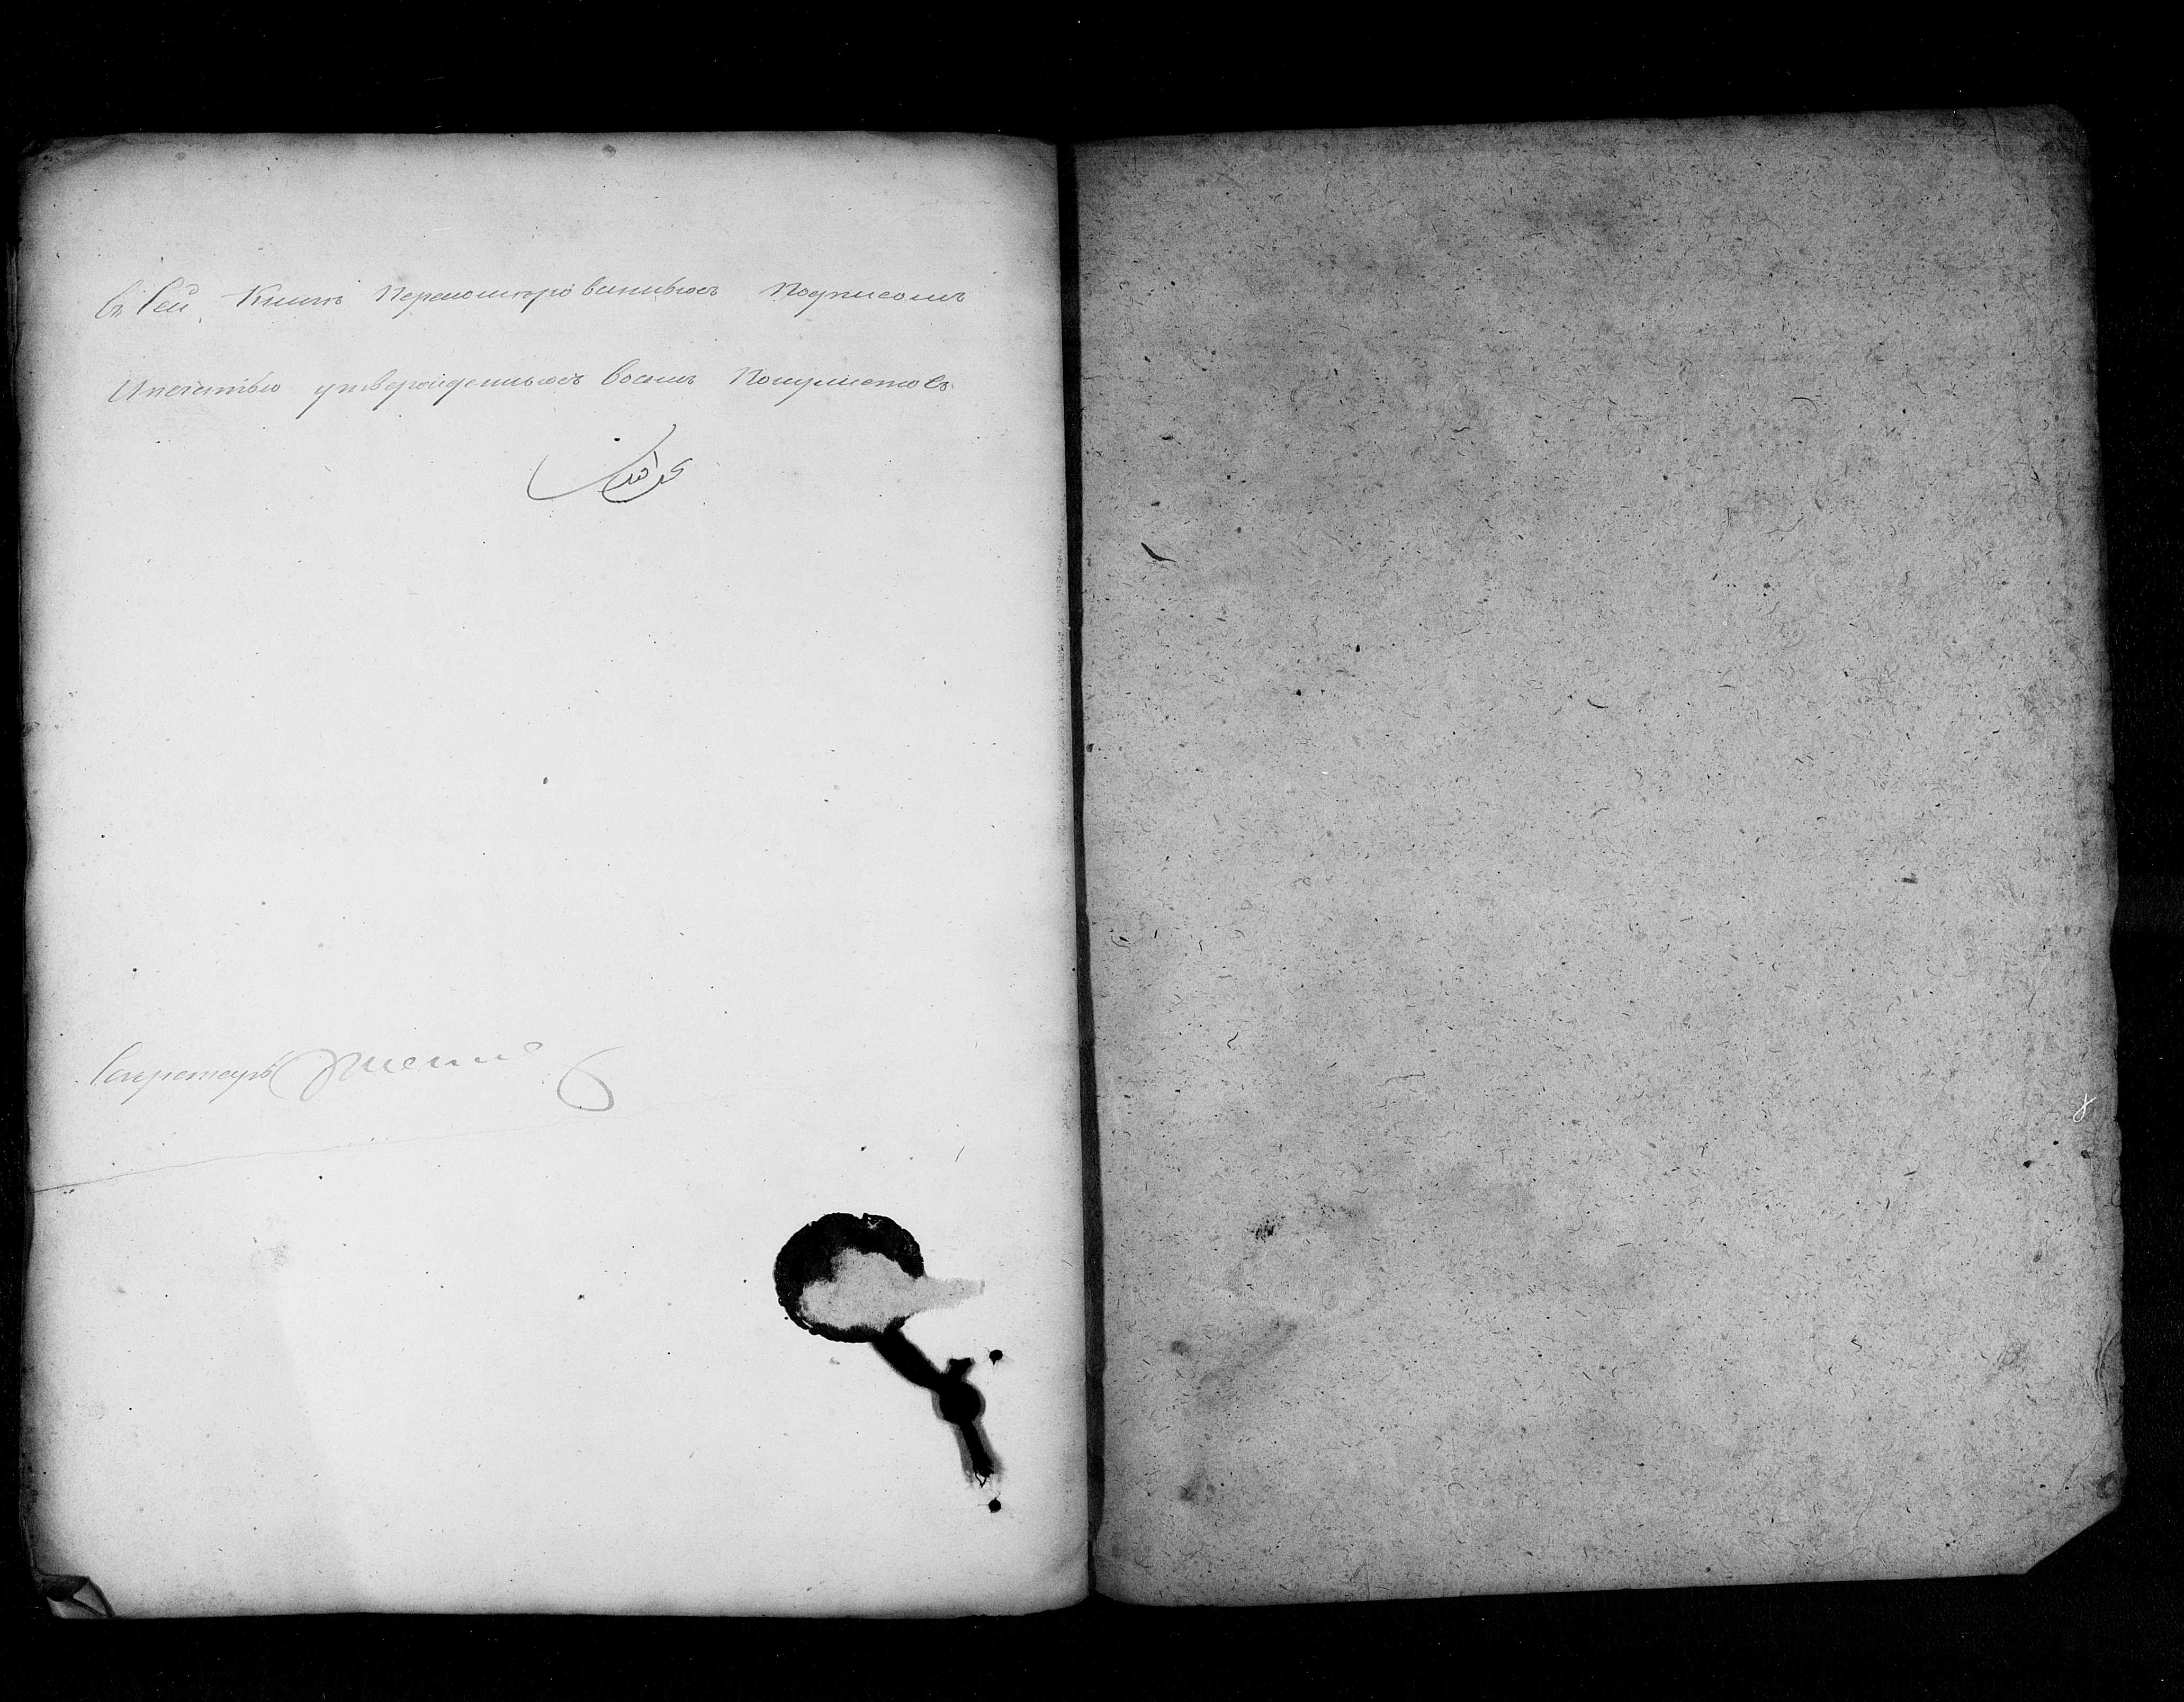 въ Сей Книгѣ Переномерованныхъ Подписомъ
Ипечатью утвержденныхъ восемь Полулистовъ
Секретарь